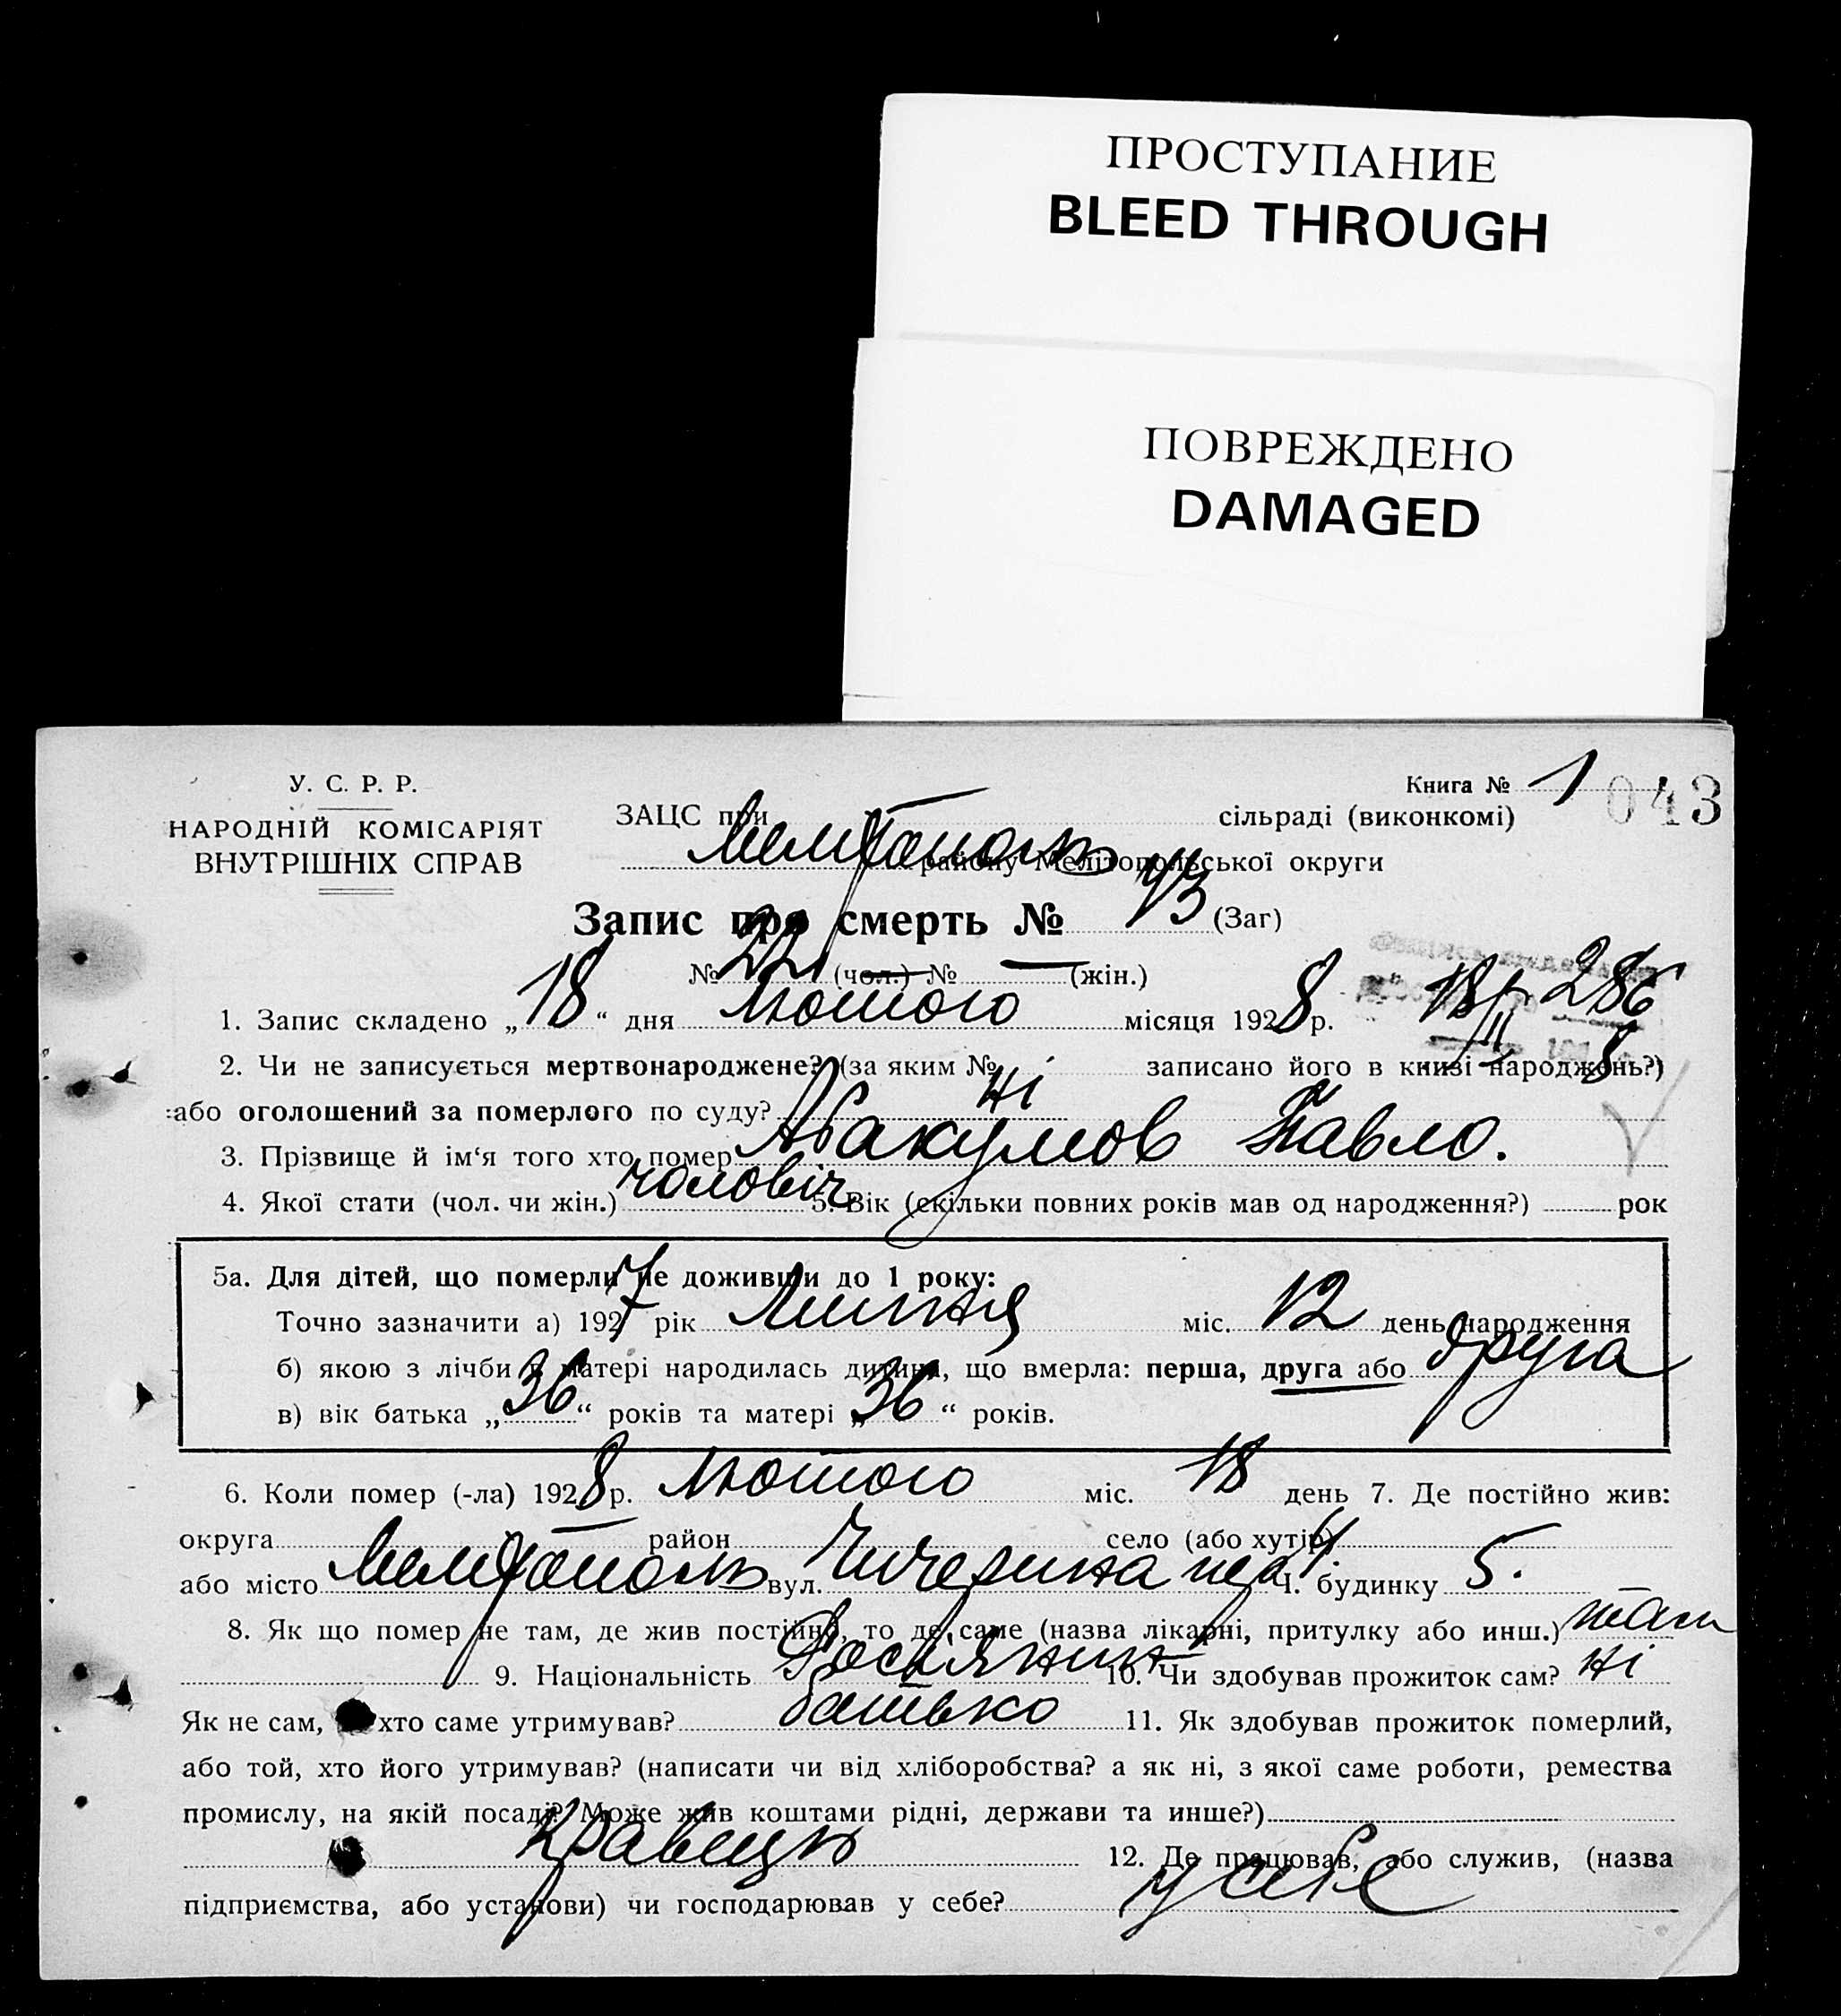 ПРОСТУПАНИЕ
BLEED THROUGH
ПОВРЕЖДЕНО
DAMAGED
У. С. Р. Р.
НАРОДНІЙ КОМІСАРІЯТ
ВНУТРІШНІХ СПРАВ
Книга № 1 043
ЗАЦС при сільраді (виконкомі)
Мелітополь району Мелітопольської округи
Запис про смерть № 43 (Заг)
№ 22 (чол.) № — (жін.)
1. Запис складено „18“ дня Лютого місяця 1928 р. 18/II 286
2. Чи не записується мертвонароджене? (за яким № записано його в книзі народжень?) 8
або оголошений за померлого по суду? Ні
3. Прізвище й ім‘я того хто помер Абакумов Павло.
4. Якої стати (чол. чи жін.) чоловіч 5. Вік (скільки повних років мав од народження?) рок
5а. Для дітей, що померли не доживши до 1 року:
Точно зазначити а) 1927 рік Липня міс. 12 день народження
б) якою з лічби в матері народилась дитина, що вмерла: перша, друга або друга
в) вік батька „36“ років та матері „36“ років.
6. Коли помер (-ла) 1928 р. Лютого міс. 18 день 7. Де постійно жив:
округа район село (або хутір)
або місто Мелітополь вул. Чичерина Ч. будинку 5.
8. Як що помер не там, де жив постійно, то де саме (назва лікарні, притулку або инш.) там
9. Національність Росіянин 10. Чи здобував прожиток сам? Ні
Як не сам, хто саме утримував? батько 11. Як здобував прожиток померлий,
або той, хто його утримував? (написати чи від хліборобства? а як ні, з якої саме роботи, ремества
промислу, на якій посаді? Може жив коштами рідні, держави та инше?)
Кравець 12. Де працював, або служив, (назва
підприємства, або установи) чи господарював у себе? у себе